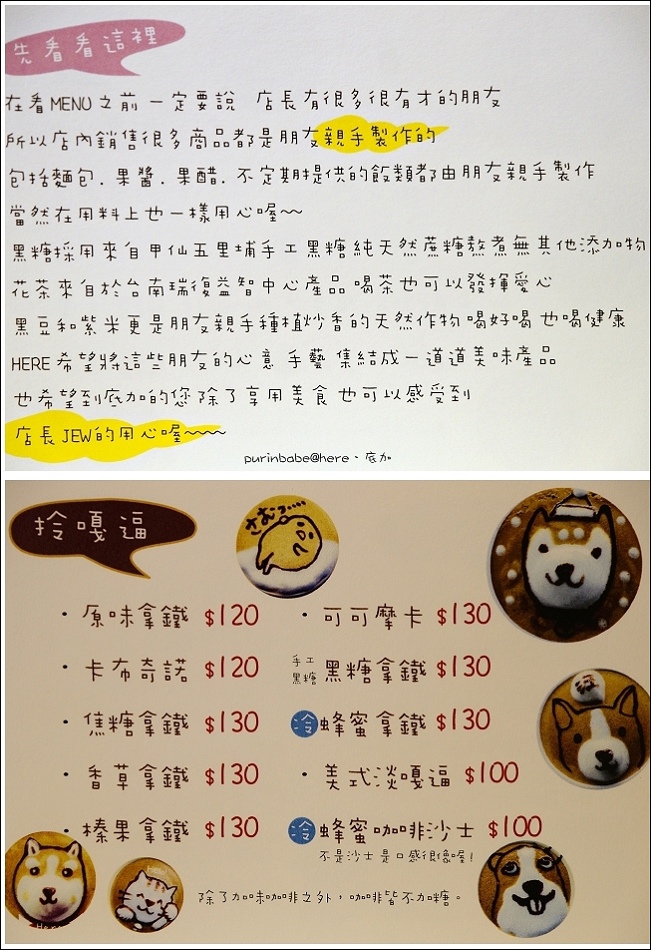 先看看這裡
在看MENU之前一定要說 店長有很多很有才的朋友
所以店內銷售很多商品都是朋友親手製作的
包括麵包.果醬.果醋.不定期提供的飯類都由朋友親手製作
當然在用料上也一樣用心喔~~
黑糖採用來自甲仙五里埔手工黑糖純天然蔗糖熬煮無其他添加物
花茶來自於台南瑞復益智中心產品喝茶也可以發揮愛心
黑豆和紫米更是朋友親手種植炒香的天然作物喝好喝也喝健康
HERE希望將這些朋友的心意手藝集結成一道道美味產品
也希望到底加的您除了享用美食也可以感受到
店長JEW的用心喔~~~~
purinbabe@here、底加
拎嘎逼
さむっ....
・原味拿鐵 $120
・可可摩卡 $130
・卡布奇諾 $120
手工黑糖 黑糖拿鐵 $130
・焦糖拿鐵 $130
冷 蜂蜜拿鐵 $130
・香草拿鐵 $130
・美式淡嘎逼 $100
・榛果拿鐵 $130
冷 蜂蜜咖啡沙士 $100
不是沙士是口感很像喔!
除了加味咖啡之外，咖啡皆不加糖。
Here